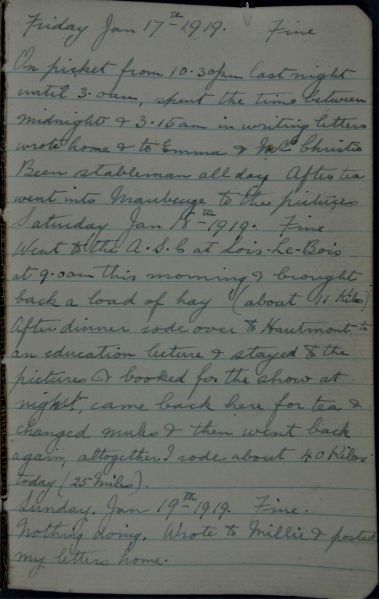 Friday Jan 17th 1919. Fine
On picket from 10.30pm last night
until 3.0am, spent the time between
midnight & 3.15am in writing letters
wrote home & to Emma & Christie
Been stableman all day After tea
went into Maubeuge to the pictures
Saturday Jan 18th 1919. Fine
Went to the A.S.C at Sois-Le-Bois
at 9.0am this morning & brought
back a load of hay (about 11 Kilos)
After dinner rode over to Hautmont to
an education lecture & stayed to the
pictures & booked for the show at
night, came back here for tea &
changed mules & then went back
again, altogether I rode about 40 Kilos
today (25 Miles).
Sunday. Jan 19th 1919. Fine.
Nothing doing. Wrote to Millie & posted
my letters home.